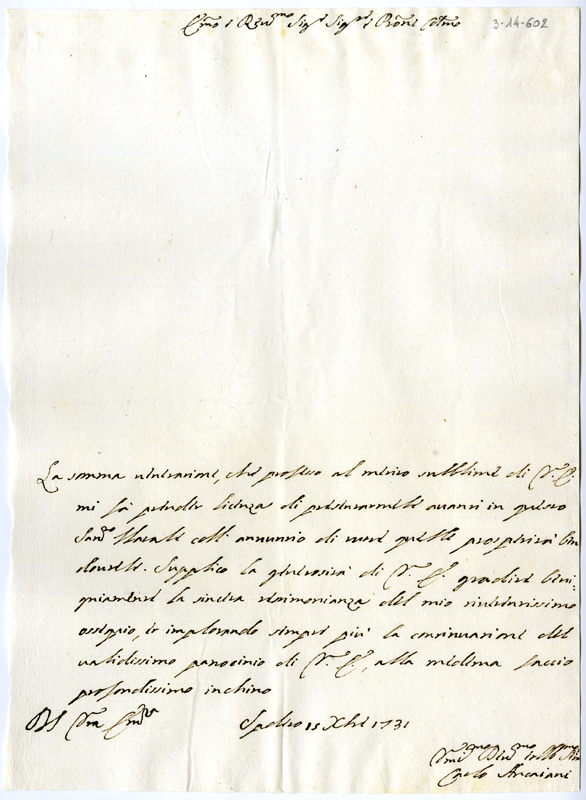 Em̃o e Rev.mo Sig.r Sig.r e Prõne Col.mo
3-14-602
La somma venerazione, che professo al merito sublime di V.ra E.
mi fà prender licenza di presentarmele avanti in questo
San.to Natale coll'annunzio di tutte quelle prosperità ben
dovutele. Supplico la generosità di V.ra E. gradire beni:
gnamente la sincera testimonianza del mio riverentissimo
ossequio, et implorando sempre più la continuazione del
validissimo patrocinio di V.ra E., alla medema faccio
profondissimo inchino
Di V.ra Em.za
Spoleto 15 Xbre 1731
Carlo Ancaiani